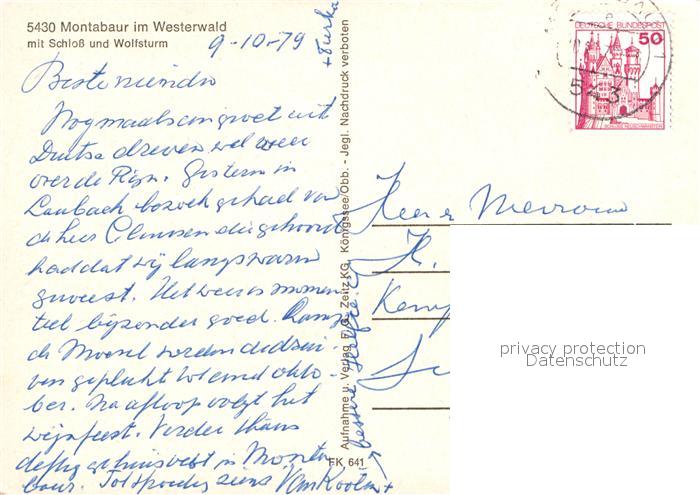 5430 Montabaur im Westerwald
mit Schloß und Wolfsturm
9-10-79
Beste vrienden
Nogmaals een groet uit
Duitse dreven wel weer
over de Rijn. Gisteren in
Laubach bezoek gehad van
de heer Clemssen die gehoord
had dat wij langs waren
geweest. Het weer is momen-
teel bijzonder goed. Langs
de Moezel worden de drui-
ven geplukt tot eind okto-
ber. Na afloop volgt het
wijnfeest. Verder thans
deftig gehuisvest in Monta
baur. Tot spoedig ziens
+ Furka
Aufnahme u. Verlag F.G. Zeitz KG, Königssee/Obb. - Jegl. Nachdruck verboten
FK 641
bessere
DEUTSCHE BUNDESPOST
50
SCHLOSS NEUSCHWANSTEIN
543
Heer & Mevrouw
H.
privacy protection
Datenschutz